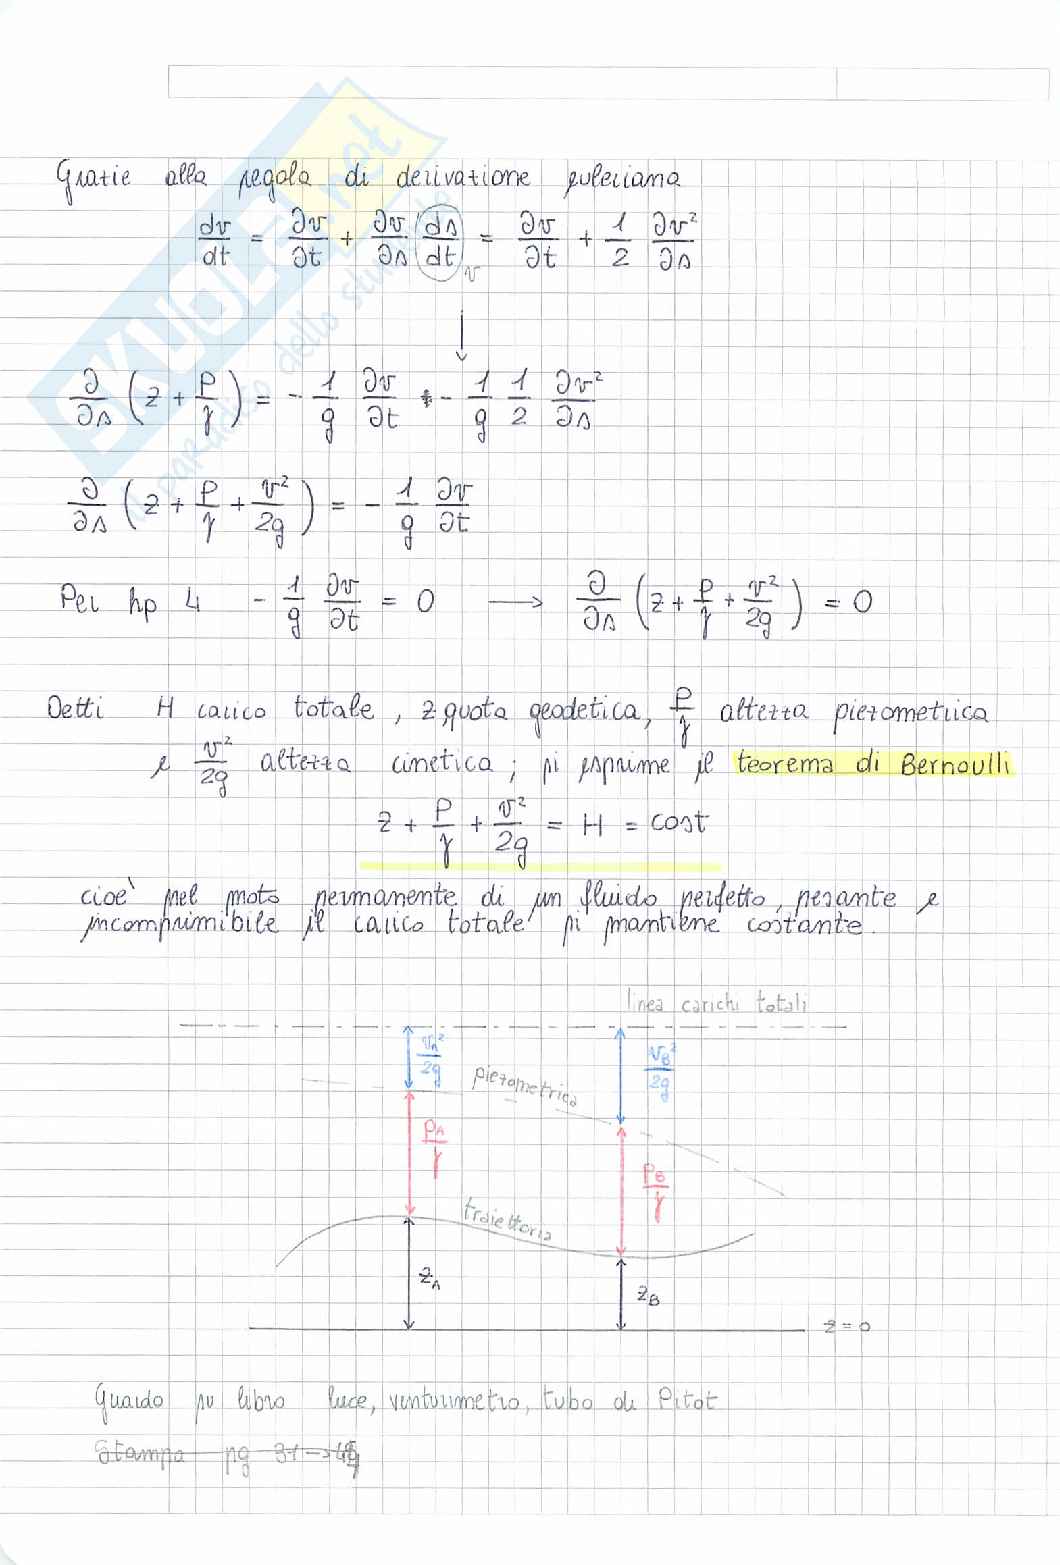 Grazie alla regola di derivazione euleriana
dv/dt = ∂v/∂t + ∂v/∂s (ds/dt) v = ∂v/∂t + 1/2 ∂v²/∂s
↓
∂/∂s (z + p/γ) = - 1/g ∂v/∂t - 1/g 1/2 ∂v²/∂s
∂/∂s (z + p/γ + v²/2g) = - 1/g ∂v/∂t
Per hp 4 - 1/g ∂v/∂t = 0 → ∂/∂s (z + p/γ + v²/2g) = 0
Detti H carico totale, z quota geodetica, p/γ altezza piezometrica
e v²/2g altezza cinetica; si esprime il teorema di Bernoulli
z + p/γ + v²/2g = H = cost
cioè nel moto permanente di un fluido perfetto, pesante e
incomprimibile il carico totale si mantiene costante.
linea carichi totali
vA²/2g
vB²/2g
piezometrica
pA/γ
pB/γ
traiettoria
zA
zB
z=0
Guardo su libro luce, venturimetro, tubo di Pitot
Stampa pg 31→
SKUOLA.net
il paradiso dello studente